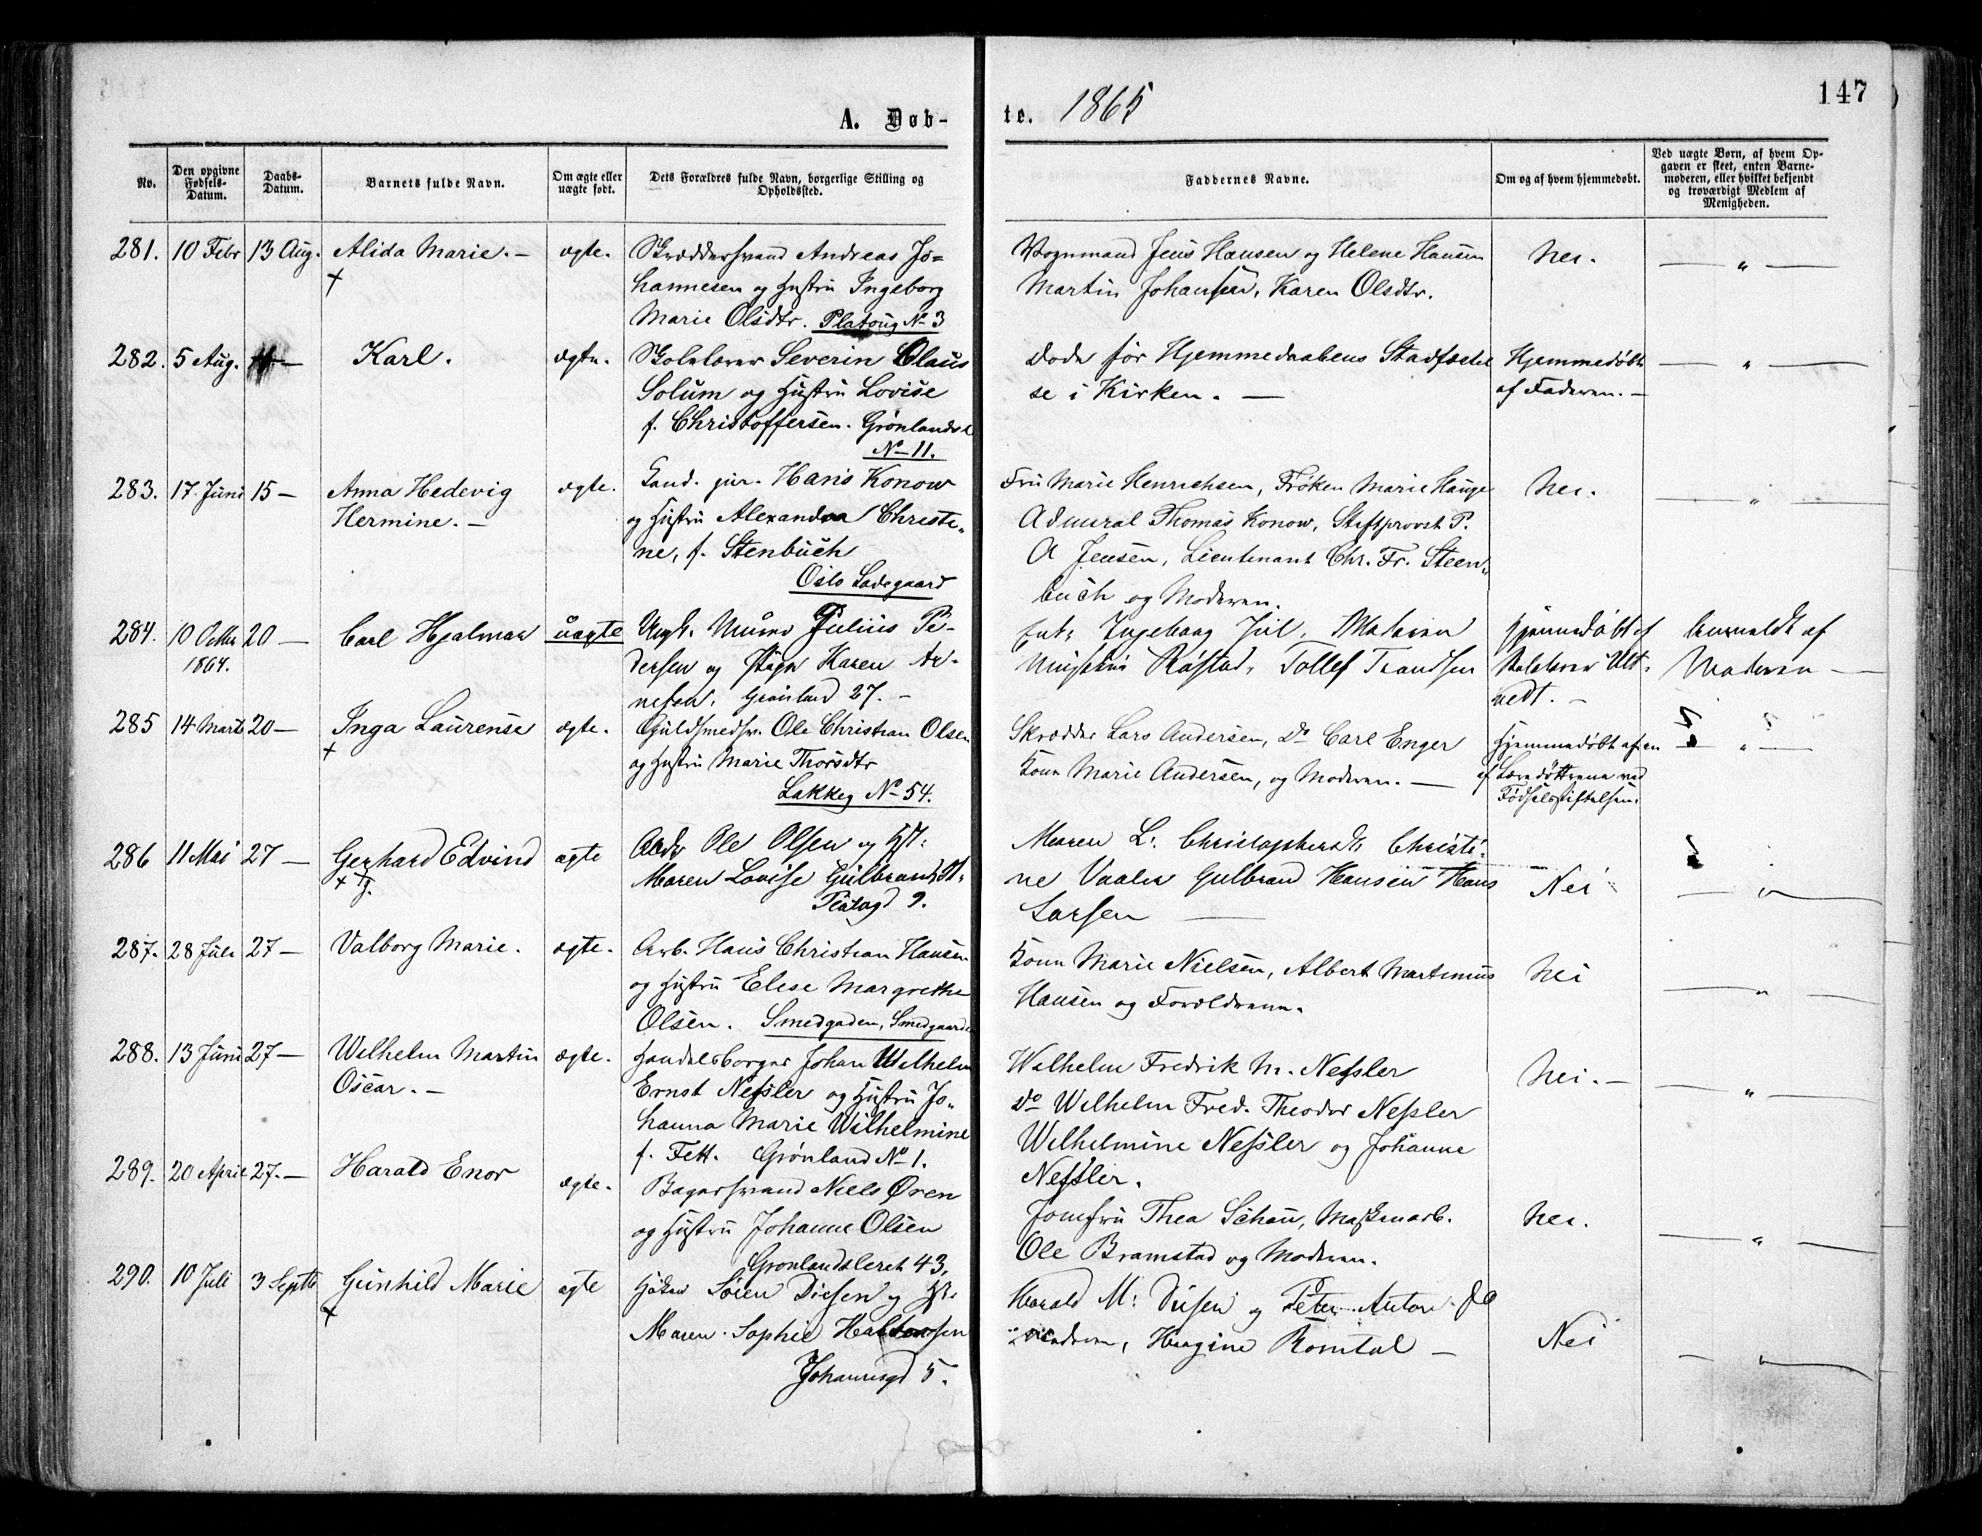 147
A. Døb-
te. 1865
No.
Den opgivne Fødsels-Datum.
Daabs-Datum.
Barnets fulde Navn.
Om ægte eller uægte født.
Dets Forældres fulde Navn, borgerlige Stilling og Opholdssted.
Faddernes Navne.
Om og af hvem hjemmedøbt.
Ved uægte Børn, af hvem Op-
gaven er skeet, enten Barne-
moderen, eller hvilket bekjendt
og troværdigt Medlem af
Menigheden.
281. 10 Febr 13 Aug. Alida Marie. — ægte. Skræddersvend Andreas Jo-
hannesen og Hustru Ingeborg
Marie Olsdtr. Platoug No 3
Vognmand Jens Hansen og Helene Hansen
Martin Johansen, Karen Olsdtr.
Nei. — " —
282. 5 Aug. Karl. ægte. Skolelærer Severin Olaus
Solum og Hustru Lovise
f. Christoffersen. Grønlandsl
No 11.
Døde før Hjemmedaabens Stadfæstel
se i Kirken. —
Hjemmedøbt
af Faderen. —
— " —
283. 17. Juni 15 — Anna Hedevig
Hermine. — ægte. Cand. jur. Hans Konow
og Hustru Alexandra Christi-
ne, f. Stenbuch
Oslo Ladegaard
Fru Marie Henrichsen, Frøken Marie Hauge
Admiral Thomas Konow, Stiftsprovst P.
A Jensen, Lieutenant Chr. Fr. Steen-
buch og Moderen.
Nei. — " —
284. 10 Octbr 20 — Carl Hjalmar uægte Ungk. Julius Pe-
1864.
dersen og Pige Karen Ar-
nesen. Grønland 27. —
Enk. Ingeborg Jul,
Tollef
Hjemmedøbt af
— Moderen —
285 14 Marts 20 — Inga Laurense ægte. Guldsmedsv. Ole Christian Olsen
og Hustru Marie Thorsdtr
Lakkeg No 54.
Skrædder Lars Andersen, Do Carl Enger
Kone Marie Andersen, og Moderen. —
Hjemmedøbt af en
af Læredøttrene ved
Fødselsstiftelsen.
— " —
286 11 Mai 27 — Gerhard Edvind ægte Ole Olsen og Hst:
Maren Lovise Gulbrandsdt.
Platogd 9.
Maren L. Christophersdt, Christi-
ne Vaaler Gulbrand Hansen Hans
Larsen —
Nei — " —
287. 28 Juli 27 — Valborg Marie. ægte. Arb. Hans Christian Hansen
og Hustru Elise Margrethe
Olsen. Smedgaden, Smedgaarden
Kone Marie Nielsen, Albert Martinius
Hansen og Forældrene.
Nei — " —
288. 13 Juni 27 — Wilhelm Martin
Oscar. — ægte. Handelsborger Johan Wilhelm
Ernst Nessler og Hustru Jo-
hanna Marie Wilhelmine
f. Fett. Grønland No 1.
Wilhelm Fredrik M. Nessler
Do Wilhelm Fred. Theodor Nessler
Wilhelmine Nessler og Johanne
Nessler.
Nei. — — " —
289. 20 April 27. — Harald Enor ægte. Bagersvend Niels Øren
og Hustru Johanne Olsen
Grønlandsleret 43.
Jomfru Thea Schou, Maskinarb.
Ole Bramstad og Moderen.
Nei. — " —
290. 10 Juli 3 Septb Gunhild Marie ægte Høker Søren Diesen og H.
Maren Sophie
Johannesgd 5.
Harald M. Diesen og Peter Anton
Romtal —
Nei — " —